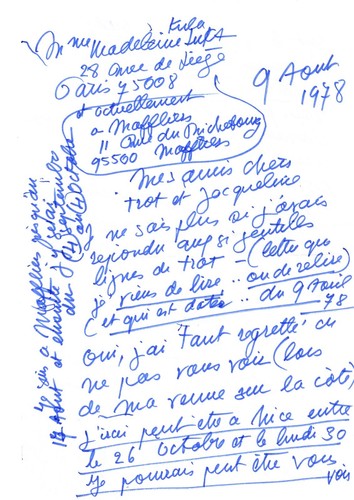 Mme Madeleine
28 rue de Liège
Paris 75008
et actuellement
a Maffliers
11 rue du Richebourg
95500 Maffliers
9 Aout
1978
Mes amis chers
Trot et Jacqueline
Je ne sais plus si j'avais
repondu aux si gentilles
lignes de Trot - (lettre que
je viens de lire .. ou de relire)
(et qui est datée .. du 9 Avril
78
oui, j'ai tant regretté
ne pas vous voir (lors
de ma venue sur la côte)
j'irai peut être a Nice entre
le 26 octobre et le lundi 30
Je pourrais peut être vous
voir
Je suis a Maffliers jusqu'au
17 Aout et ensuite j'y serai
du septembre
au Octobre